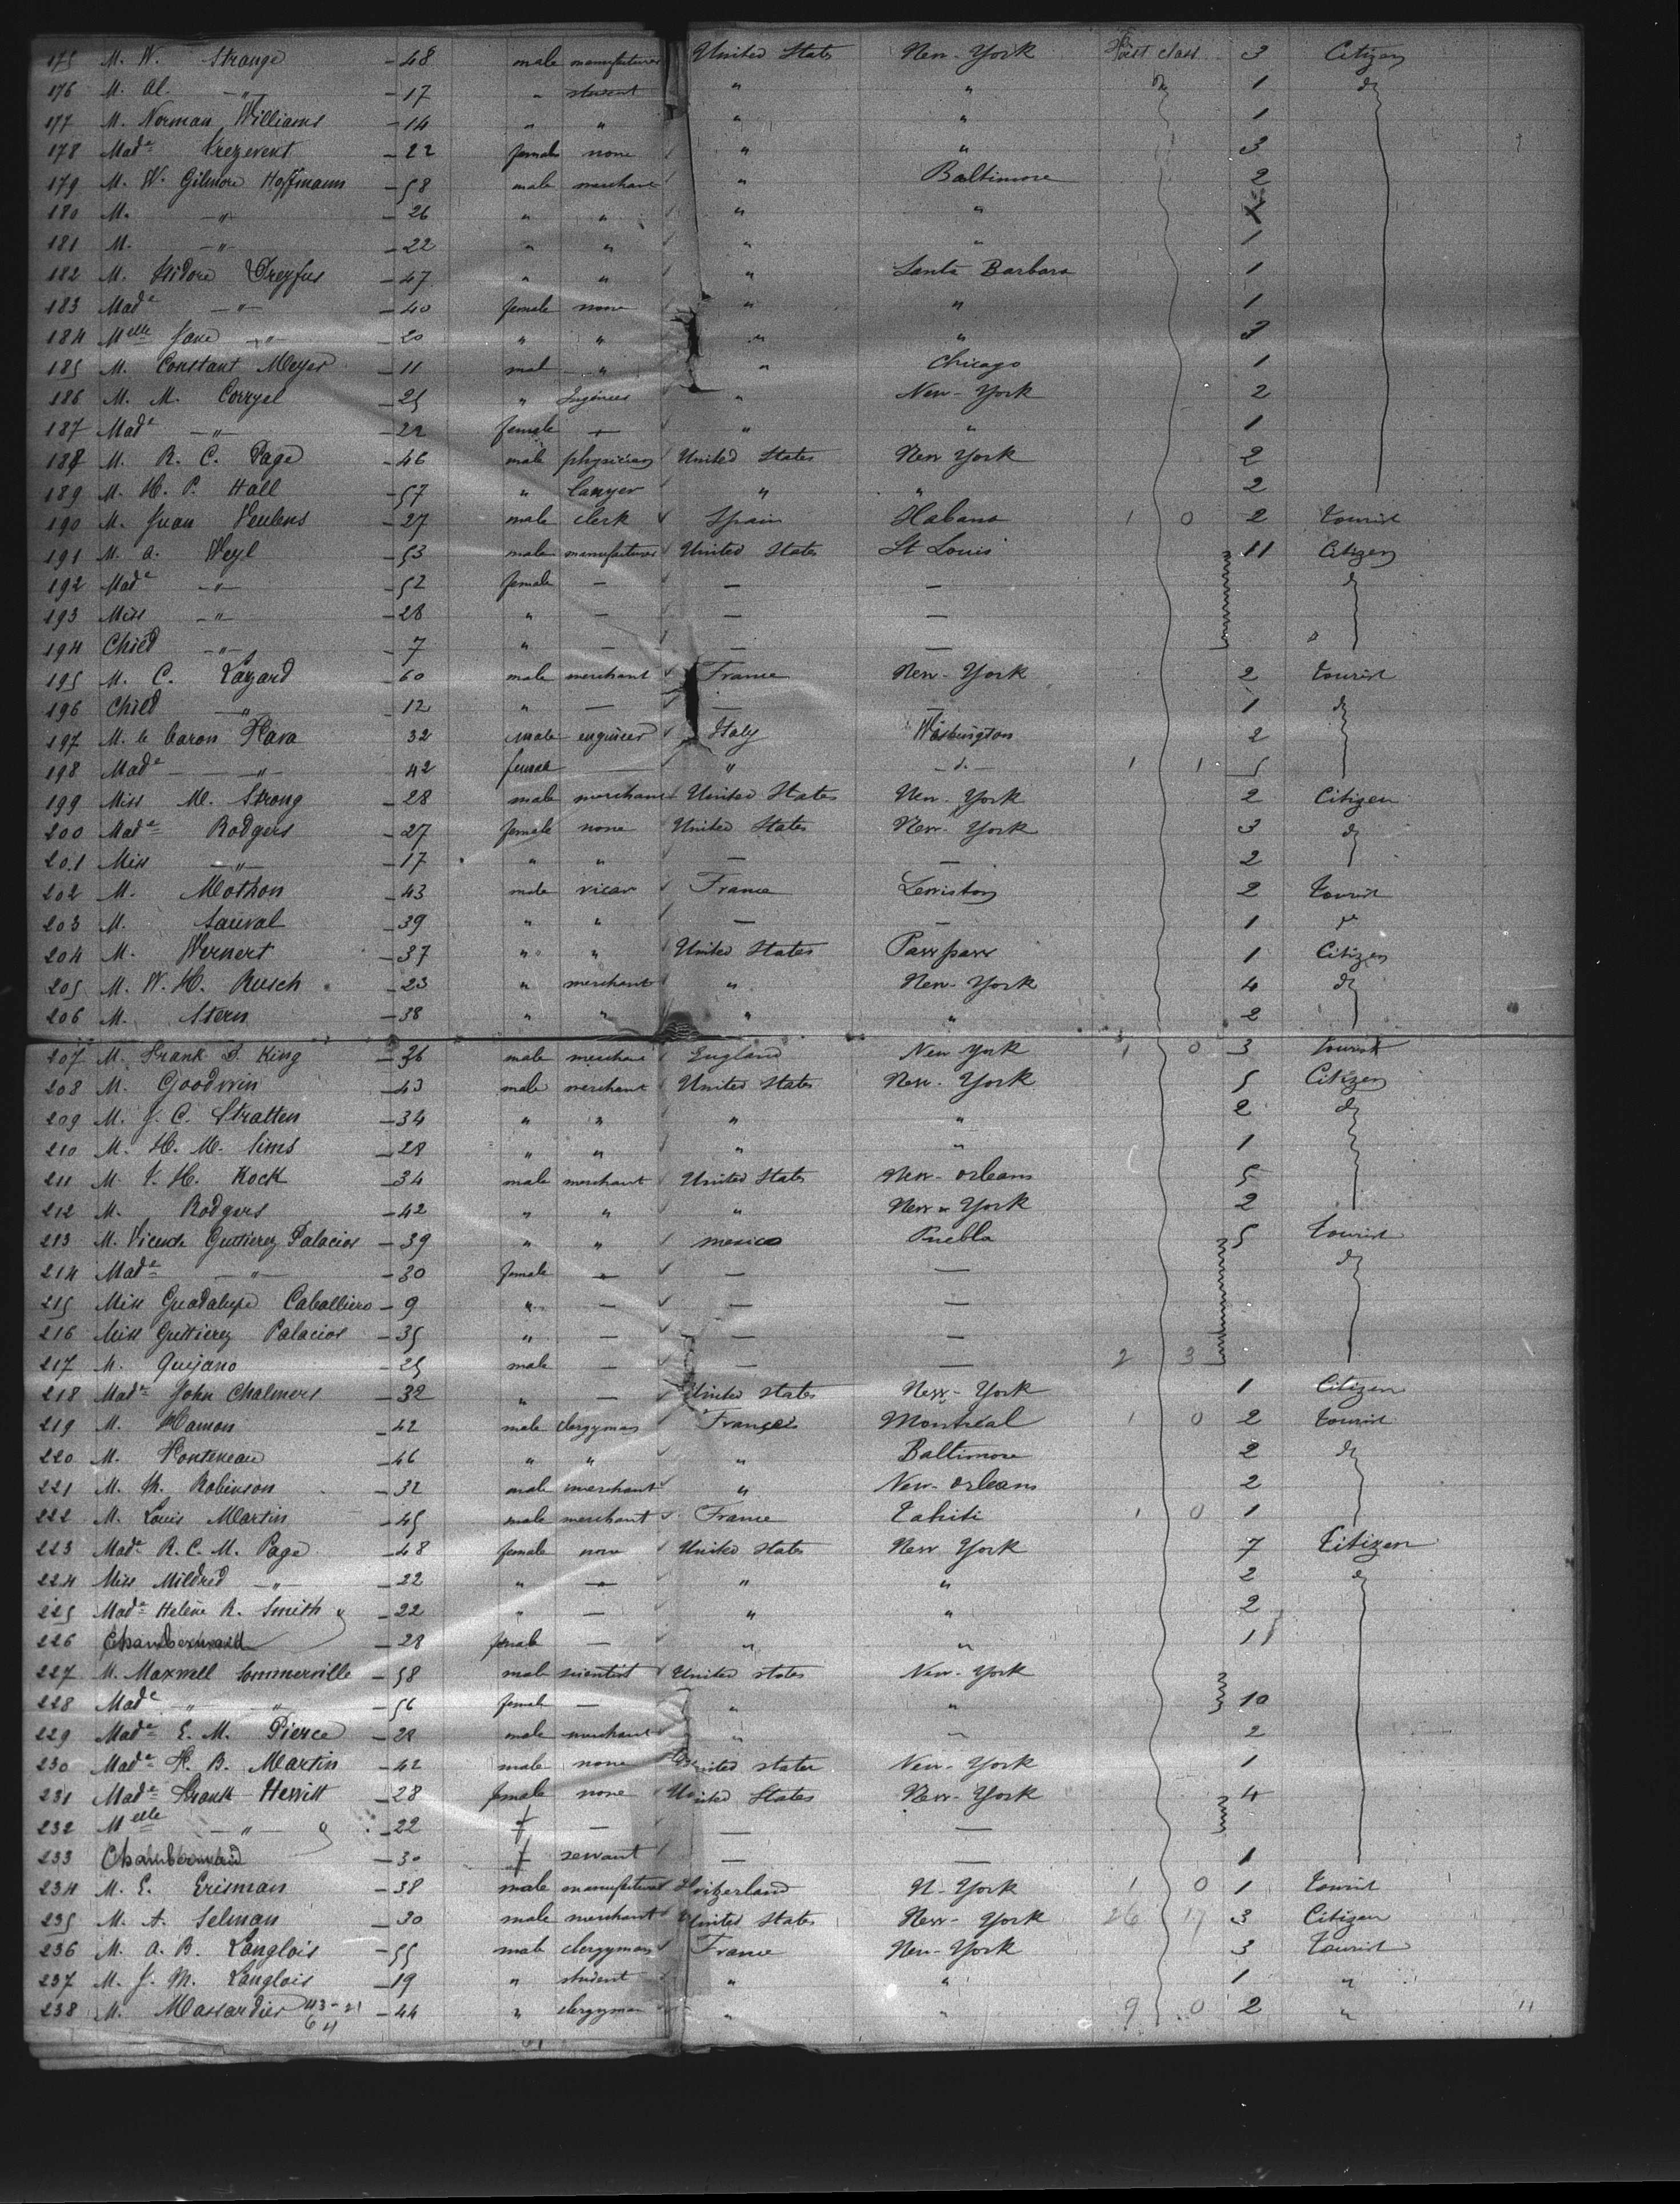 175 M. W. Strange - 48 male manufacturer United States New-York first class 3 Citizen
176 M. Al. -"- - 17 " student " " do 1 do
177 M. Norman Williams - 14 " " " " 1
178 Made - 22 female none " " 3
179 M. W. Gilmore Hoffmann - 58 male merchant " Baltimore 2
180 M. -"- - 26 " " " "
181 M. -"- - 22 " " " " 1
182 M. Isidore Dreyfus - 47 " " " Santa Barbara 1
183 Made -"- - 40 female none " " 1
184 Melle Jane -"- - 20 " " " " 3
185 M. Constant Meyer - 11 mal " " Chicago 1
186 M. M. Corryel - 25 " Ingenieer " New-York 2
187 Made -"- - 22 female — " " 1
188 M. R. C. Page - 46 male physician United States New York 2
189 M. H. P. Hall - 57 " lawyer " " 2
190 M. Juan Veulens - 27 male clerk Spain Habana 1 0 2 tourist
191 M. A. Weyl - 53 male manufacturer United States St Louis 11 Citizen
192 Made -"- - 52 female — — — do
193 Miss -"- - 28 " — — —
194 Child -"- - 7 " — — —
195 M. C. Lazard - 60 male merchant France New-York 2 tourist
196 Child -"- - 12 " — — — 1 do
197 M. le baron Hava 32 male engineer Italy Washington 2
198 Made -"- 42 female — " - d. - 1 1 5
199 Miss M. Strong - 28 male merchant United States New-York 2 Citizen
200 Made Rodgers - 27 female none United States New-York 3 do
201 Miss -"- - 17 " " — — 2
202 M. Mothon - 43 male vicar France Lewiston 2 tourist
203 M. Sauval - 39 " " — — 1 do
204 M. Wernert - 37 " " United States Pawpaw 1 Citizen
205 M. W. H. Rusch - 23 " merchant " New-York 4 do
206 M. Stern - 38 " " " " 2
207 M. Frank B. King - 36 male merchant England New York 1 0 3 tourist
208 M. Goodwin - 43 male merchant United States New-York 5 Citizen
209 M. J. C. Stratten - 34 " " " " 2 do
210 M. H. M. Sims - 28 " " " " 1
211 M. V. H. Kock - 34 male merchant United States New-Orleans 5
212 M. Rodgers - 42 " " " New-York 2
213 M. Vicente Guttierez Palacios - 39 " " mexico Puebla 5 tourist
214 Made -"- - 30 female — — — do
215 Miss Guadalupe Caballiero - 9 " — — —
216 Miss Guttierez Palacios - 35 " — — —
217 M. Quijano - 25 male — — — 2 3
218 Made John Chalmers - 32 " — United States New-York 1 Citizen
219 M. Hamon - 42 male clergyman Français Montréal 1 0 2 tourist
220 M. Fonteneau - 46 " " " Baltimore 2 do
221 M. M. Robinson - 32 male merchant " New-Orleans 2
222 M. Louis Martin - 45 male merchant France Tahiti 1 0 1
223 Made R. C. M. Page - 48 female none United States New York 7 Citizen
224 Miss Mildred -"- - 22 " — " " 2 do
225 Made Helène R. Smith - 22 " — " " 2
226 Chambermaid - 28 female — " " 1
227 M. Maxwell Sommerville - 58 male scientist United States New-York
228 Made " " - 56 female — " " 10
229 Made E. M. Pierce - 28 male merchant " " 2
230 Made H. B. Martin - 42 male none United States New-York 1
231 Made Frank Hewitt - 28 female none United States New-York 4
232 Melle -"- - 22 f — — —
233 Chambermaid - 30 f servant — — 1
234 M. E. Erisman - 38 male manufacturer Switzerland N-York 1 0 1 tourist
235 M. A. Selman - 30 male merchant United States New-York 26 17 3 Citizen
236 M. A. B. Langlois - 55 male clergyman France New-York 3 tourist
237 M. J. M. Langlois - 19 " student " " 1 "
238 M. Massardier 43-21 64 - 44 " clergyman " " 9 0 2 " 11